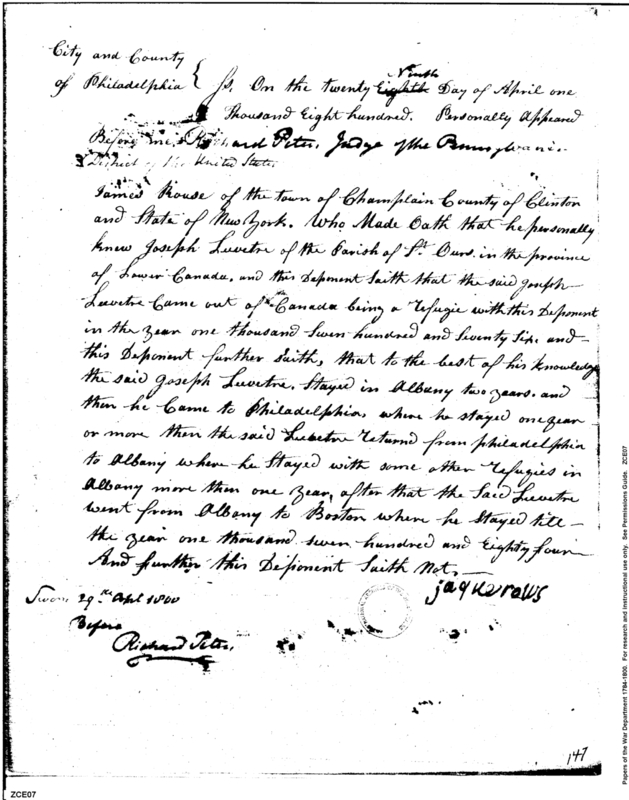 City and County
of Philadelphia } ss. On the twenty Eighth Ninth Day of April one
Thousand Eight hundred. Personally Appeared
Before me Richard Peters, Judge of the Pennsylvania
District of the United States
James Rouse of the town of Champlain County of Clinton
and State of New York. Who Made Oath that he personally
knew Joseph Luvetre of the Parish of St Ours. in the province
of Lower Canada, and this Deponent Saith that the said Joseph
Luvetre Came out of Canada being a refugie with this Deponent
in the year one thousand Seven hundred and Seventy Six. and
this Deponent further Saith, that to the best of his Knowledge
the said Joseph Luvetre, Stayed in Albany two years. and
then he Came to Philadelphia, where he stayed one year
or more then the said Luvetre returnd from philadelphia
to Albany where he Stayed with some other refugies in
Albany more then one year, after that the Said Luvetre
went from Albany to Boston where he Stayed till
the year one thousand seven hundred and Eighty four
And further this Deponent Saith Not.
jaque raws
Sworn 29th April 1800
Before
Richard Peters.
147
ZCE07
Papers of the War Department 1784-1800. For research and instructional use only. See Permissions Guide. ZCE07